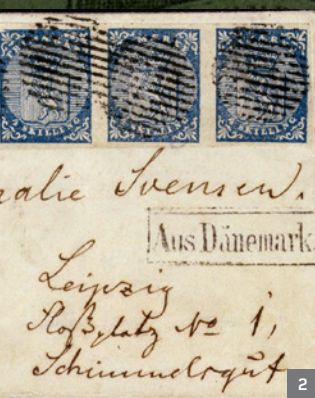 4 SKILLING 4 SKILLING 4 SKILLING
alie Svensen.
Aus Dänemark
Leipzig
Floßplatz No 1,
Schimmelsgut
2